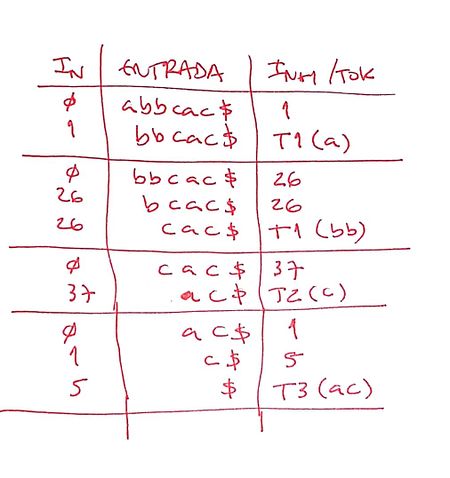 IN ENTRADA IN+1/TOK
0 abbcac$ 1
1 bbcac$ T1(a)
0 bbcac$ 26
26 bcac$ 26
26 cac$ T1(bb)
0 cac$ 37
37 ac$ T2(c)
0 ac$ 1
1 c$ 5
5 $ T3(ac)